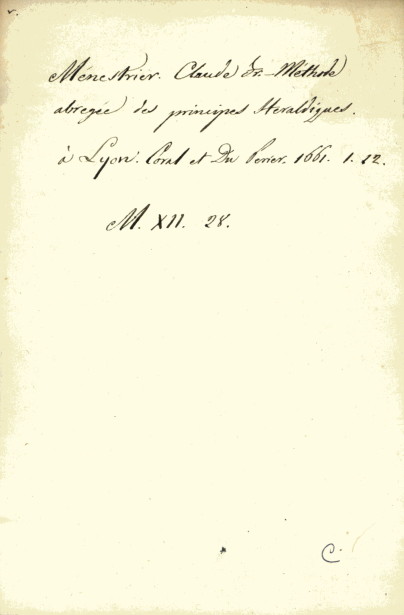 Ménestrier. Claude Fr. Méthode
abregée des principes Heraldiques.
à Lyon. Coral et Du Perier. 1661. 1. 12.
M. XII. 28.
C.